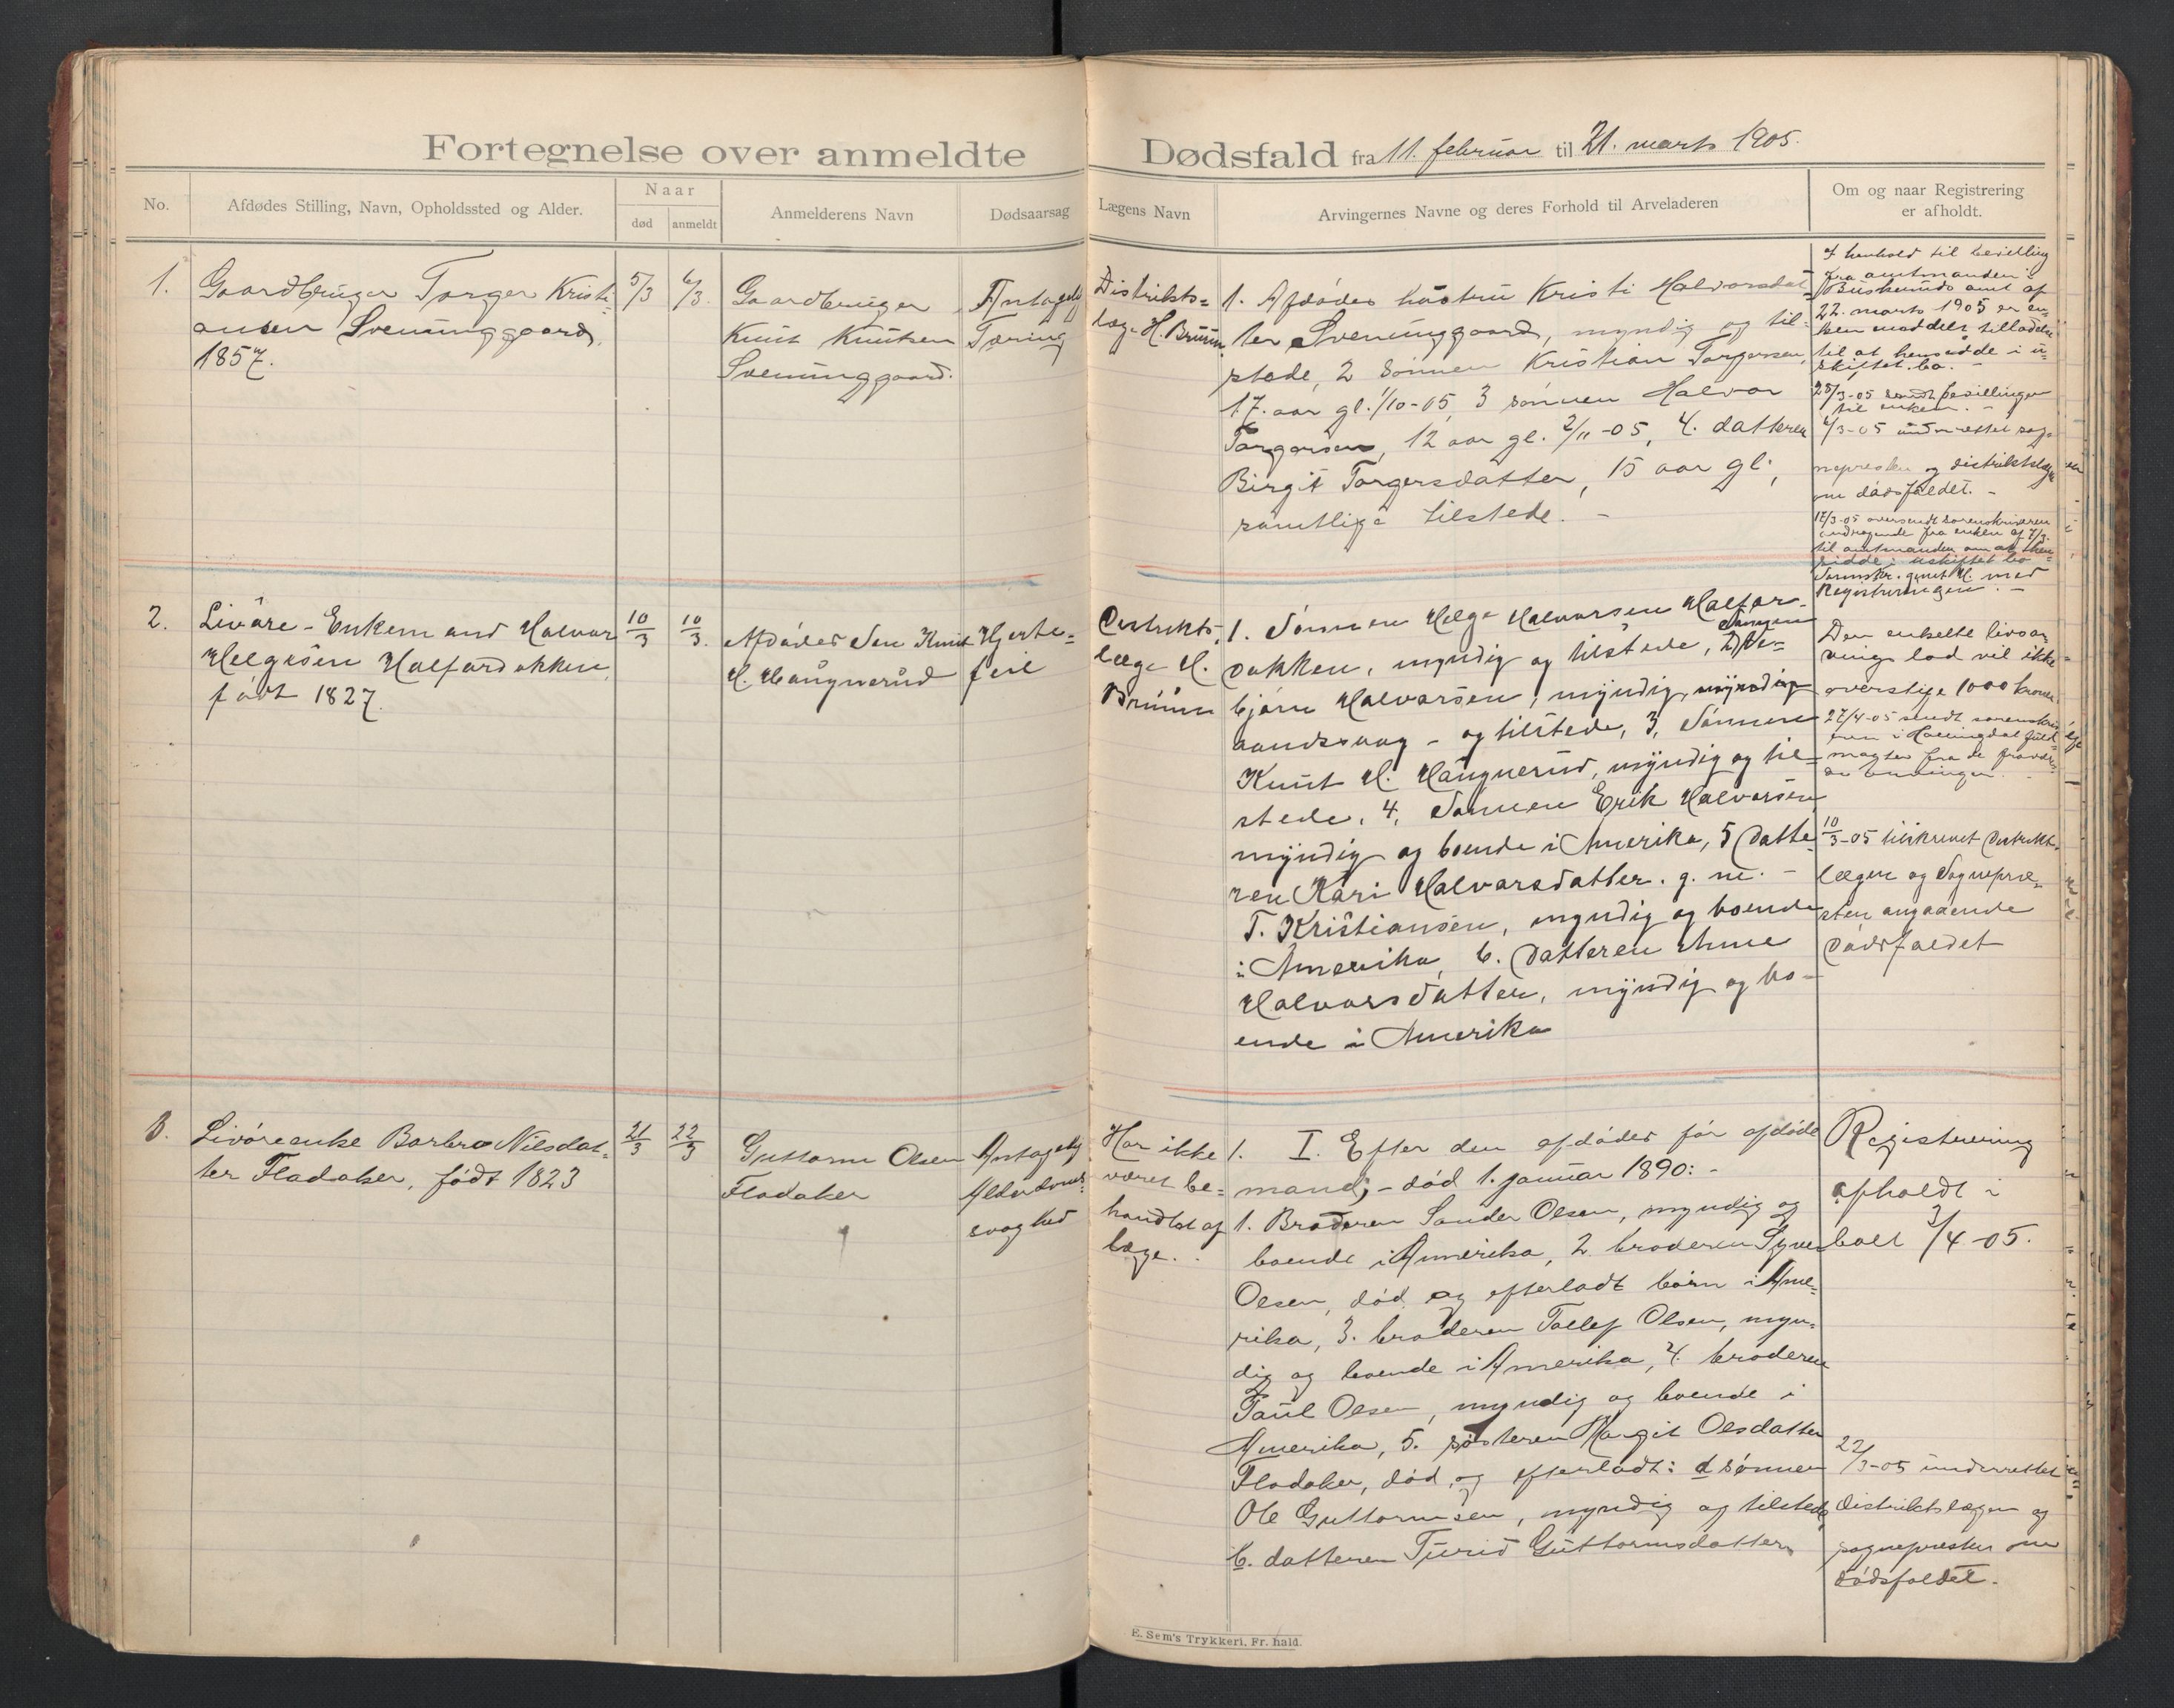 Fortegnelse over anmeldte Dødsfald fra 11. februar til 21. marts 1905.
No.
Afdødes Stilling, Navn, Opholdssted og Alder.
Naar
død
anmeldt
Anmelderens Navn
Dødsaarsag
Lægens Navn
Arvingernes Navne og deres Forhold til Arveladeren
Om og naar Registrering
er afholdt.
1.
Gaardbruger Torger Kristi-
ansen Sveninggaard,
1857.
5/3
6/3.
Gaardbruger
Knut Knutsen
Sveninggaard.
Antagelig
Tæring
Distrikts=
læge H. Bruun
1. Afdødes hustru Kristi Halvorsdat=
ter Sveninggaard, myndig og til-
stede, 2 Sønnen Kristian Torgersen,
17. aar gl. 1/10-05, 3 sønnen Halvor
Torgersen, 12 aar gl. 2/11-05, 4. datteren
Birgit Torgersdatter, 15 aar gl.,
samtlige tilstede. -
I henhold til bevilling
fra amtmanden i
Buskeruds amt af
22. marts 1905 er en-
ken meddelt tilladelse
til at hensidde i u-
skiftet bo. -
25/3-05 sendt bevillingen
til enken. -
6/3-05 underrettet sog-
nepresten og distriktslægen
om dødsfaldet. -
17/3-05 oversendt sorenskriveren
andragende fra enken af 7/3
til amtmanden om at hen-
sidde i uskiftet bo
med
Registreringen. -
2.
Livøre-Enken and Halvor
Helgesen Halfardokken,
født 1827.
10/3
10/3.
Afdødes Søn Knut
H. Haugnerud
Hjerte=
feil
Distrikts-
læge H.
Bruun
1. Sønnen Helge Halvorsen Halfar-
dokken, myndig og tilstede, 2, Sønnen
bjørn Halvorsen, myndig, myndig
aandssvag - og tilstede, 3, Sønnen
Knut H. Haugnerud, myndig og til-
stede, 4, Sønnen Erik Halvorsen
myndig og boende i Amerika, 5 Datte-
ren Kari Halvorsdatter. g. m. -
T. Kristiansen, myndig og boende
i Amerika, 6. Datteren Anne
Halvorsdatter, myndig og bo-
ende i Amerika
Den enkelte livsar-
vings lod vil ikke
overstige 1000 kroner.
27/4-05 sendt sorenskri-
veren i Hallingdal fuld-
magter fra de fravær-
de arvinger.
10/3-05 tilskrevet Distrikts-
lægen og Sognepre-
sten angaaende
Dødsfaldet
3.
Livøreenke Barbro Nilsdat-
ter Fladaker, født 1823
21/3
22/3
Guttorm Olsen
Fladaker
Antagelig
Alderdoms-
svaghed
Har ikke
været be=
handlet af
læge.
1. I. Efter den afdødes før afdøde
mand; - død 1. januar 1890: -
1. Broderen Sander Olsen, myndig og
boende i Amerika, 2. broderen Syver
Olsen, død og efterladt børn i Ame-
rika, 3. broderen Tollef Olsen, myn-
dig og boende i Amerika, 4. broderen
Paul Olsen, myndig og boende i
Amerika, 5. søsteren Margit Olsdatter
Fladaker, død og efterladt: a sønnen
Ole Guttormsen, myndig og tilstede
b. datteren Turid Guttormsdatter,
Registrering
afholdt i
boet 3/4-05.
22/3-05 underrettet
distriktslægen og
sognepresten om
dødsfaldet.
E. Sem's Trykkeri, Fr.hald.